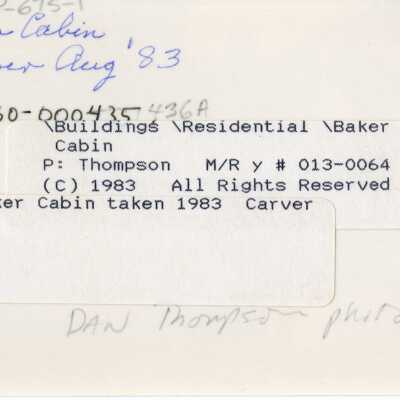 P-675-1
Cabin
Aug '83
60-000435
436A
\Buildings \Residential \Baker
Cabin
P: Thompson M/R y # 013-0064
(C) 1983 All Rights Reserved
ker Cabin taken 1983 Carver
DAN Thompson photo